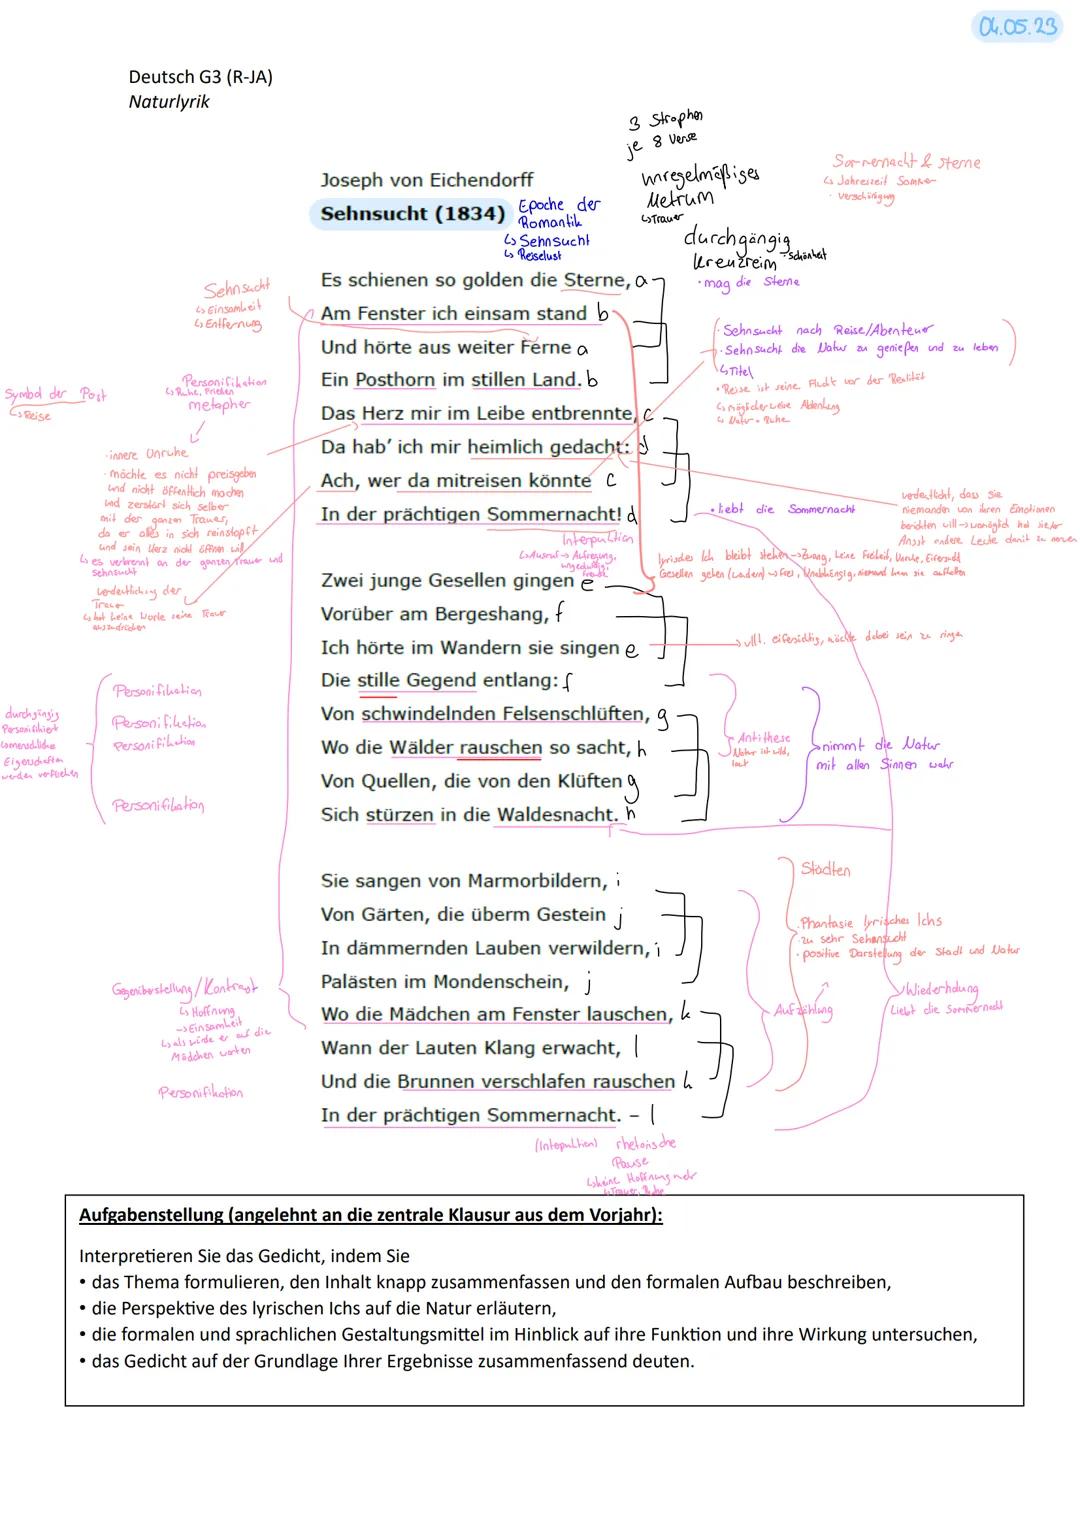 04.05.23
Deutsch G3 (R-JA)
Naturlyrik
3 Strophen
je 8 Verse
unregelmäßiges
Metrum
↳Trauer
durchgängig
Kreuzreim - Schönheit
Sommernacht & Sterne
↳ Jahreszeit Sommer
Joseph von Eichendorff
Sehnsucht (1834)
Epoche der
Romantik
↳ Sehnsucht
↳ Reiselust
Es schienen so golden die Sterne, a
• mag die Sterne
Am Fenster ich einsam stand b
Und hörte aus weiter Ferne a
Ein Posthorn im stillen Land. b
Das Herz mir im Leibe entbrennte, c
Da hab' ich mir heimlich gedacht: d
Ach, wer da mitreisen könnte c
In der prächtigen Sommernacht! d
Sehnsucht
↳ Einsamkeit
↳ Entfernung
Symbol der Post
↳ Reise
Personifikation
↳ Ruhe, Frieden
metapher
• innere Unruhe
• möchte es nicht preisgeben
und nicht öffentlich machen
und zerstört sich selber
mit der ganzen Trauer,
da er alles in sich reinstopft
und sein Herz nicht öffnen will
↳ es verbrennt an der ganzen Trauer und
sehnsucht
Verdeutlichung der
Trauer
↳ hat keine Worte seine Trauer
auszudrücken
• Sehnsucht nach Reise/Abenteuer
• Sehnsucht die Natur zu genießen und zu leben
↳ Titel
• Reise ist seine Flucht vor der Realität
↳ möglicherweise Ablenkung
↳ Natur = Ruhe
verdeutlicht, dass sie
niemanden von ihren Emotionen
berichten will → womöglich hat sie/er
Angst andere Leute damit zu nerven
• liebt die Sommernacht
Interpunktion
↳ Ausruf → Aufregung,
ungeduldig,
Freude
lyrisches Ich bleibt stehen → Zwang, keine Freiheit, Unruhe, Eifersucht
Gesellen gehen (wandern) → frei, Unabhängig, niemand kann sie aufhalten
Zwei junge Gesellen gingen e
Vorüber am Bergeshang, f
Ich hörte im Wandern sie singen e
→ vllt. eifersüchtig, möchte dabei sein zu singen
Die stille Gegend entlang: f
Von schwindelnden Felsenschlüften, g
Wo die Wälder rauschen so sacht, h
Von Quellen, die von den Klüften g
Sich stürzen in die Waldesnacht. h
durchgängig
Personifiziert
↳ menschliche
Eigenschaften
werden verliehen
Personifikation
Personifikation
Personifikation
Personifikation
Antithese
Natur ist wild,
laut
nimmt die Natur
mit allen Sinnen wahr
Sie sangen von Marmorbildern, i
Von Gärten, die überm Gestein j
In dämmernden Lauben verwildern, i
Palästen im Mondenschein, j
Wo die Mädchen am Fenster lauschen, k
Wann der Lauten Klang erwacht, l
Und die Brunnen verschlafen rauschen k
In der prächtigen Sommernacht. – l
Städten
• Phantasie lyrisches Ichs
• zu sehr Sehnsucht
• positive Darstellung der Stadt und Natur
Aufzählung
Wiederholung
Liebt die Sommernacht
Gegenüberstellung/Kontrast
↳ Hoffnung
→ Einsamkeit
↳ als würde er auf die
Mädchen warten
Personifikation
(Interpunktion) rhetorische
Pause
↳ keine Hoffnung mehr
↳ Trauer, Ruhe
Aufgabenstellung (angelehnt an die zentrale Klausur aus dem Vorjahr):
Interpretieren Sie das Gedicht, indem Sie
• das Thema formulieren, den Inhalt knapp zusammenfassen und den formalen Aufbau beschreiben,
• die Perspektive des lyrischen Ichs auf die Natur erläutern,
• die formalen und sprachlichen Gestaltungsmittel im Hinblick auf ihre Funktion und ihre Wirkung untersuchen,
• das Gedicht auf der Grundlage Ihrer Ergebnisse zusammenfassend deuten.